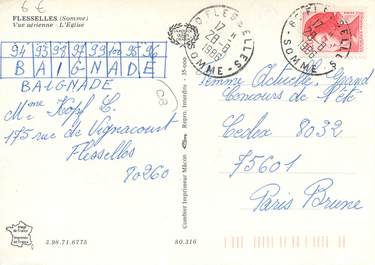 6 €
FLESSELLES (Somme)
Vue aérienne - L'Eglise
94 93 92 98 99 100 95 96
B A I G N A D E
BAIGNADE
CB
Mme Kopf C.
175 rue de Vignacourt
Flesselles
80260
FLESSELLES
17 H
28-8
1986
SOMME
FLESSELLES
17 H
28-8
1986
SOMME
Femme Actuelle, Grand
Concours de l'été
Cedex 8032
75601
Paris Brune
35-000
Repro. Interdite
Combier Imprimeur Mâcon
2.98.71.6775
80.316